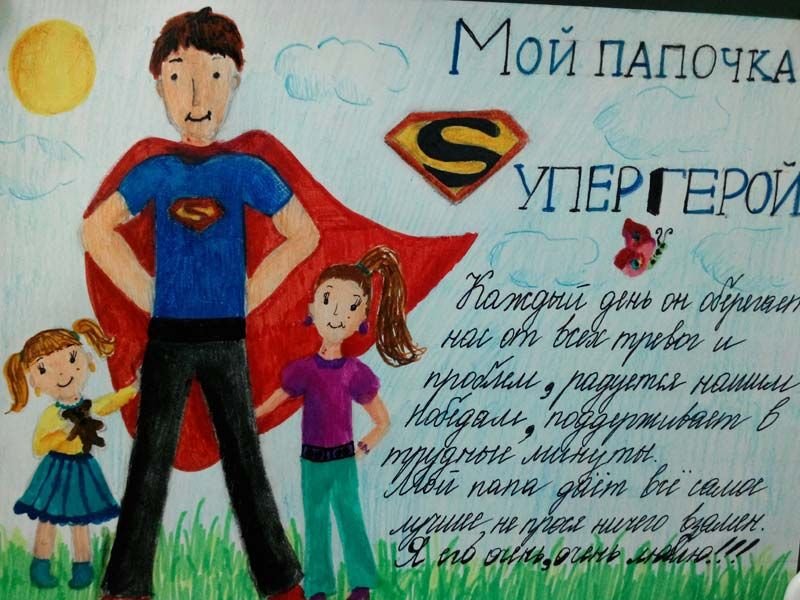 Мой папочка
S
упергерой
S
Каждый день он оберегает
нас от всех тревог и
проблем, радуется нашим
победам, поддерживает в
трудные минуты.
Мой папа даёт всё самое
лучшее, не прося ничего взамен.
Я его очень, очень люблю!!!